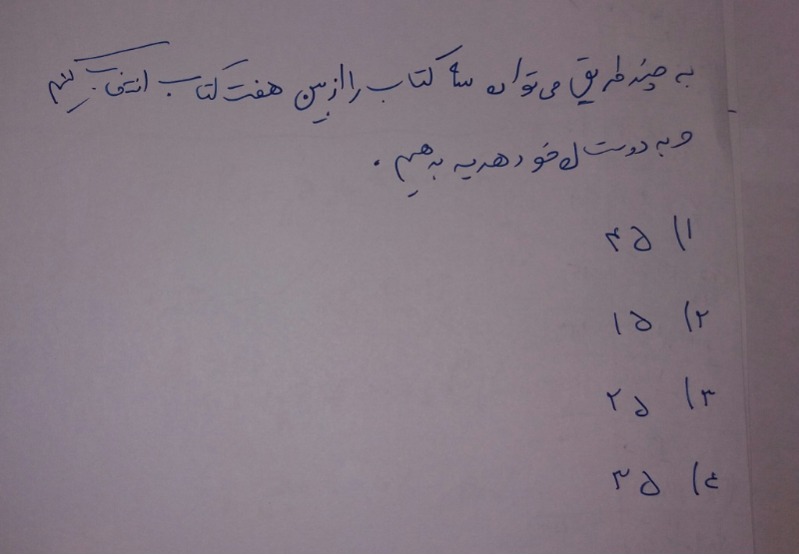 به چند طریق می توان سه کتاب را از بین هفت کتاب انتخاب کنیم
و به دوستان خود هدیه بدهیم .
۱) ۴۵
۲) ۱۵
۳) ۲۵
۴) ۳۵